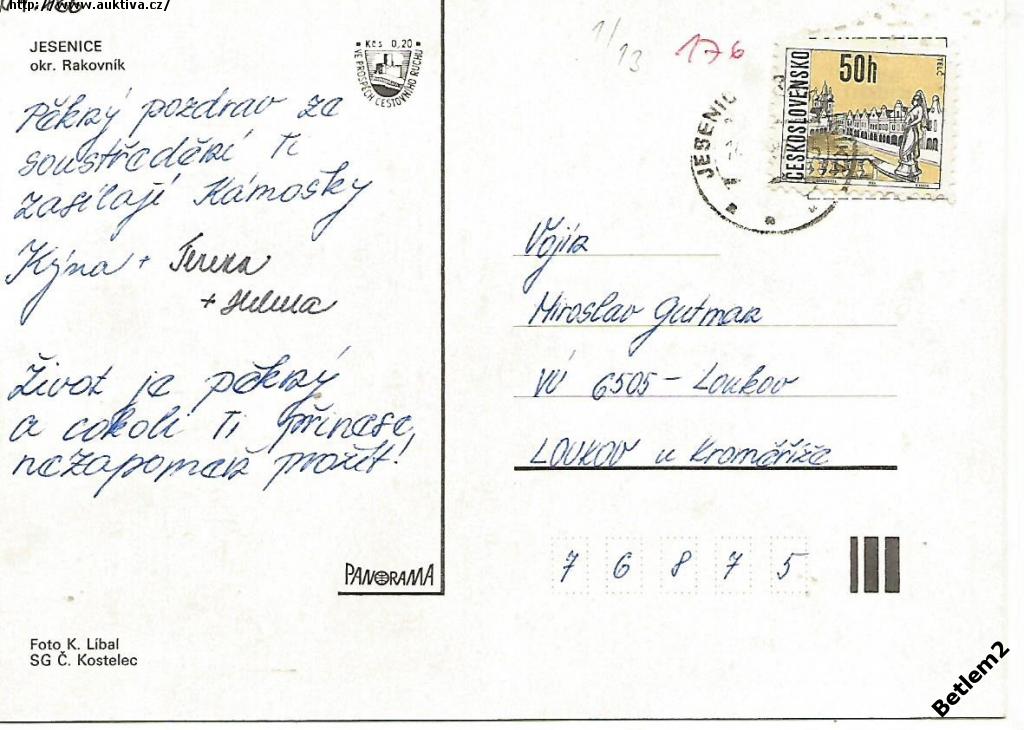 http://www.auktiva.cz/
JESENICE
okr. Rakovník
Kčs 0,20
VE PROSPĚCH CESTOVNÍHO RUCHU
Pěkný pozdrav ze
soustředění Ti
zasílají Kámošky
Kýna + Tereza
+ Helena
Život je pěkný
a cokoli Ti přinese,
nezapomeň prožít!
PANORAMA
Foto K. Líbal
SG Č. Kostelec
1/13
176
JESENIC
ČESKOSLOVENSKO
50h
TELČ
Vojín
Miroslav Gutman
VÚ 6505 - Loukov
LOUKOV u Kroměříže
7 6 8 7 5
Betlem2